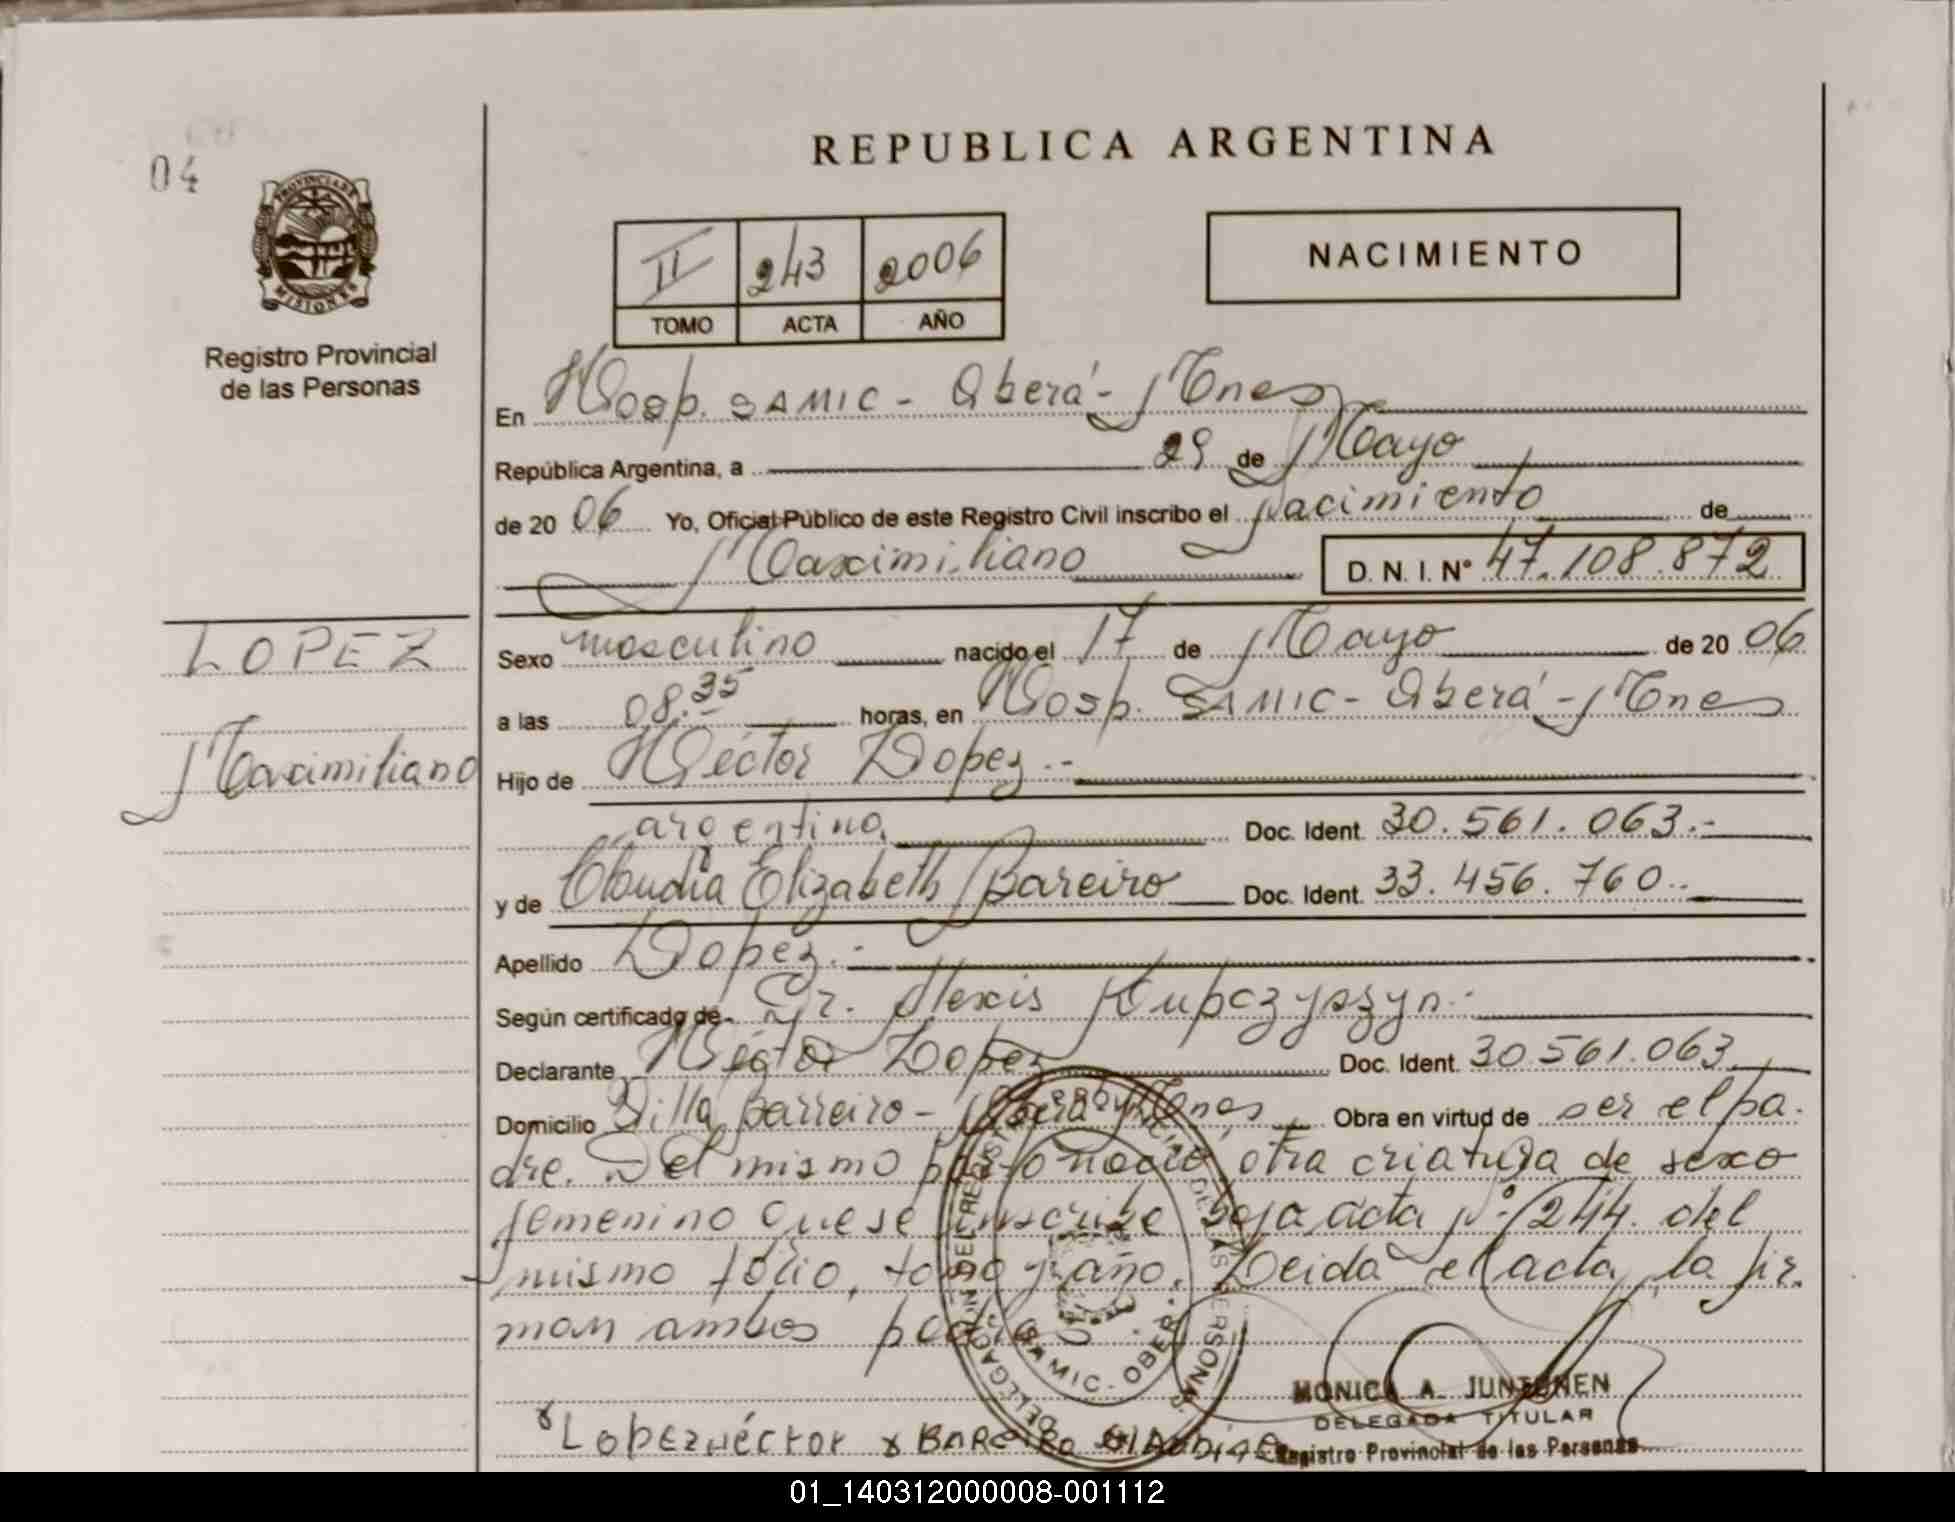 04
REPUBLICA ARGENTINA
PROVINCIA DE
MISIONES
Registro Provincial
de las Personas
II 243 2006
TOMO ACTA AÑO
NACIMIENTO
En Hosp. SAMIC - Oberá - Mnes
República Argentina, a 29 de Mayo
de 20 06 Yo, Oficial Público de este Registro Civil inscribo el nacimiento de
Maximiliano D. N. I. N° 47.108.872
LOPEZ
Maximiliano
Sexo masculino nacido el 17 de Mayo de 20 06
a las 08.35 horas, en Hosp. SAMIC - Oberá - Mnes
Hijo de Héctor Lopez.-
argentino. Doc. Ident. 30.561.063.-
y de Claudia Elizabeth Bareiro Doc. Ident. 33.456.760.-
Apellido Lopez.-
Según certificado de Dr. Alexis Kupczyszyn.-
Declarante Héctor Lopez Doc. Ident. 30.561.063
Domicilio Villa Barreiro - Oberá - Mnes Obra en virtud de ser el pa-
dre. Del mismo parto nació otra criatura de sexo
femenino que se inscribe bajo acta N° 244 del
mismo folio, tomo y año. Leida el acta, la fir-
man ambos padres
DELEGACION DEL REGISTRO PROVINCIAL DE LAS PERSONAS
SAMIC - OBERA
x Lopez Héctor x BAREIRO CLAUDIA E
MONICA A. JUNTUNEN
DELEGADA TITULAR
Registro Provincial de las Personas
01_140312000008-001112